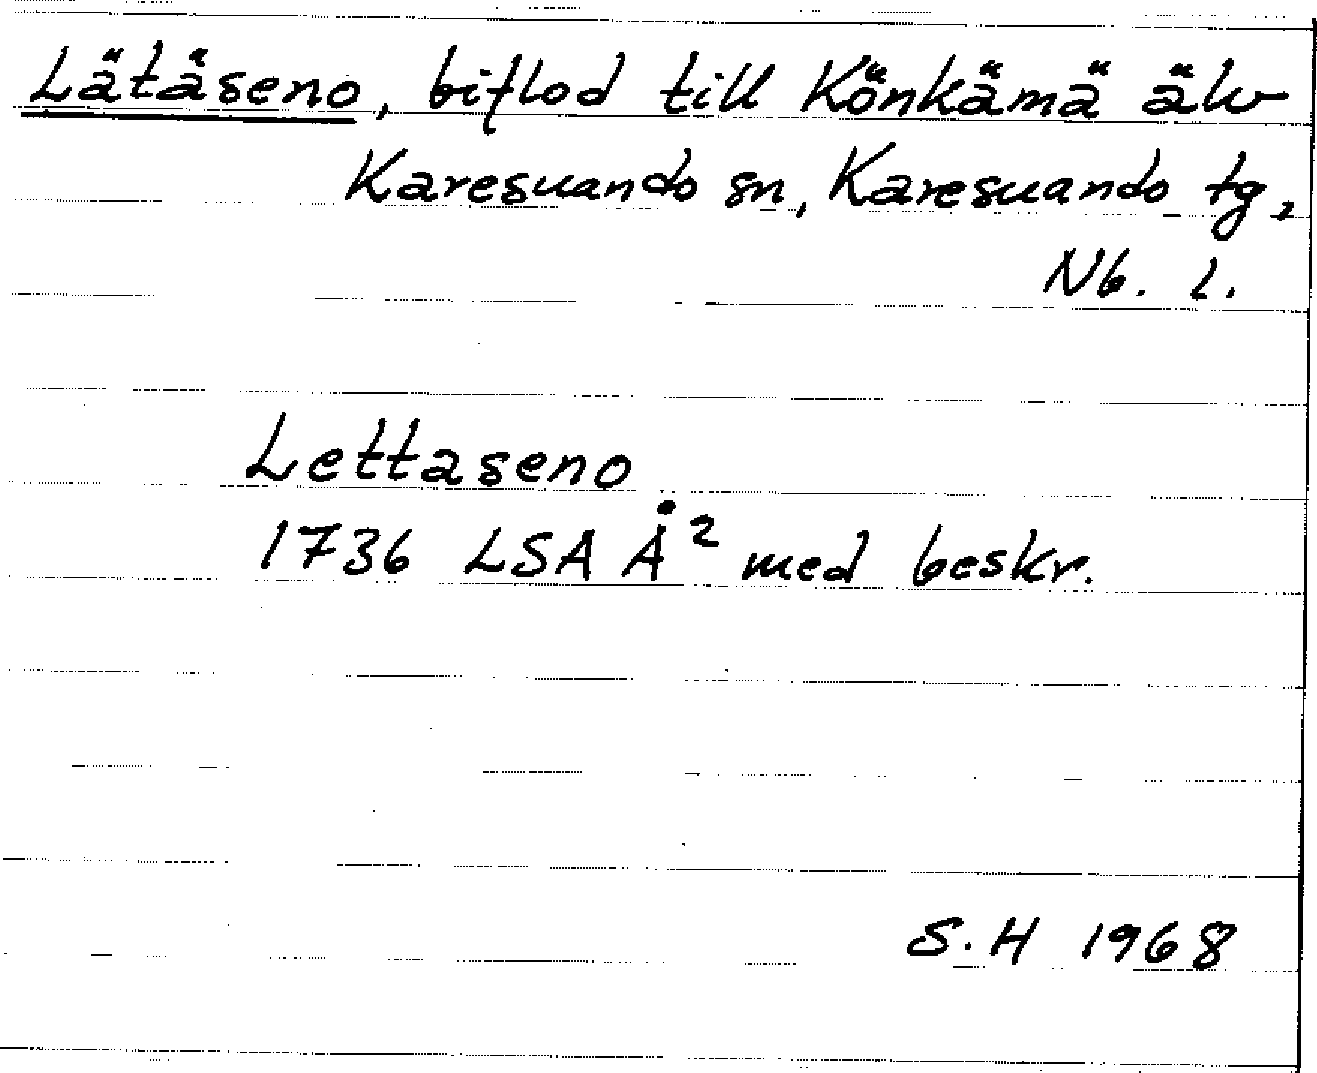 Lätäseno, biflod till Könkämä älv
Karesuando sn, Karesuando tg,
Nb. l.
Lettaseno
1736 LSA Å² med beskr.
S.H 1968